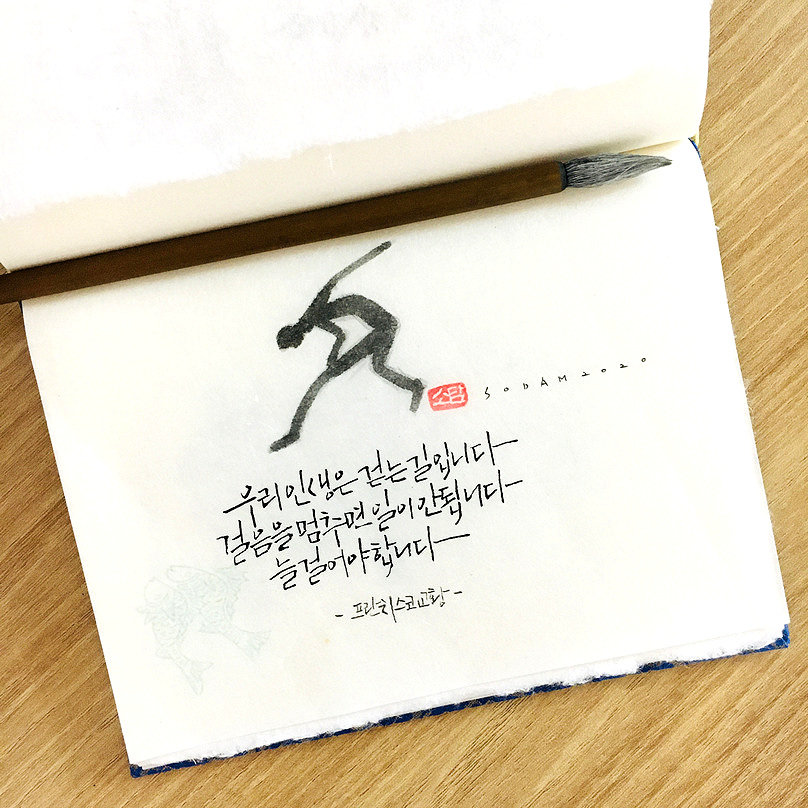 소담 SODAM2020
우리 인생은 걷는 길입니다
걸음을 멈추면 일이 안됩니다
늘 걸어야 합니다
- 프란치스코 교황 -